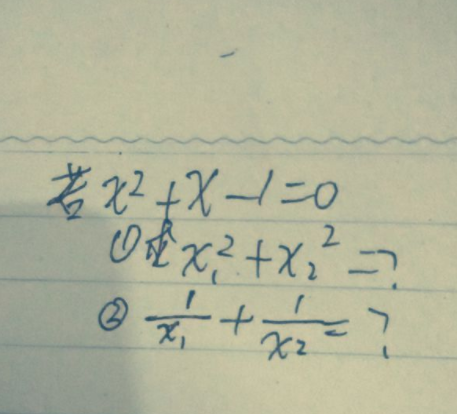 若 x² + x - 1 = 0
① 求 x₁² + x₂² = ?
② 1/x₁ + 1/x₂ = ?